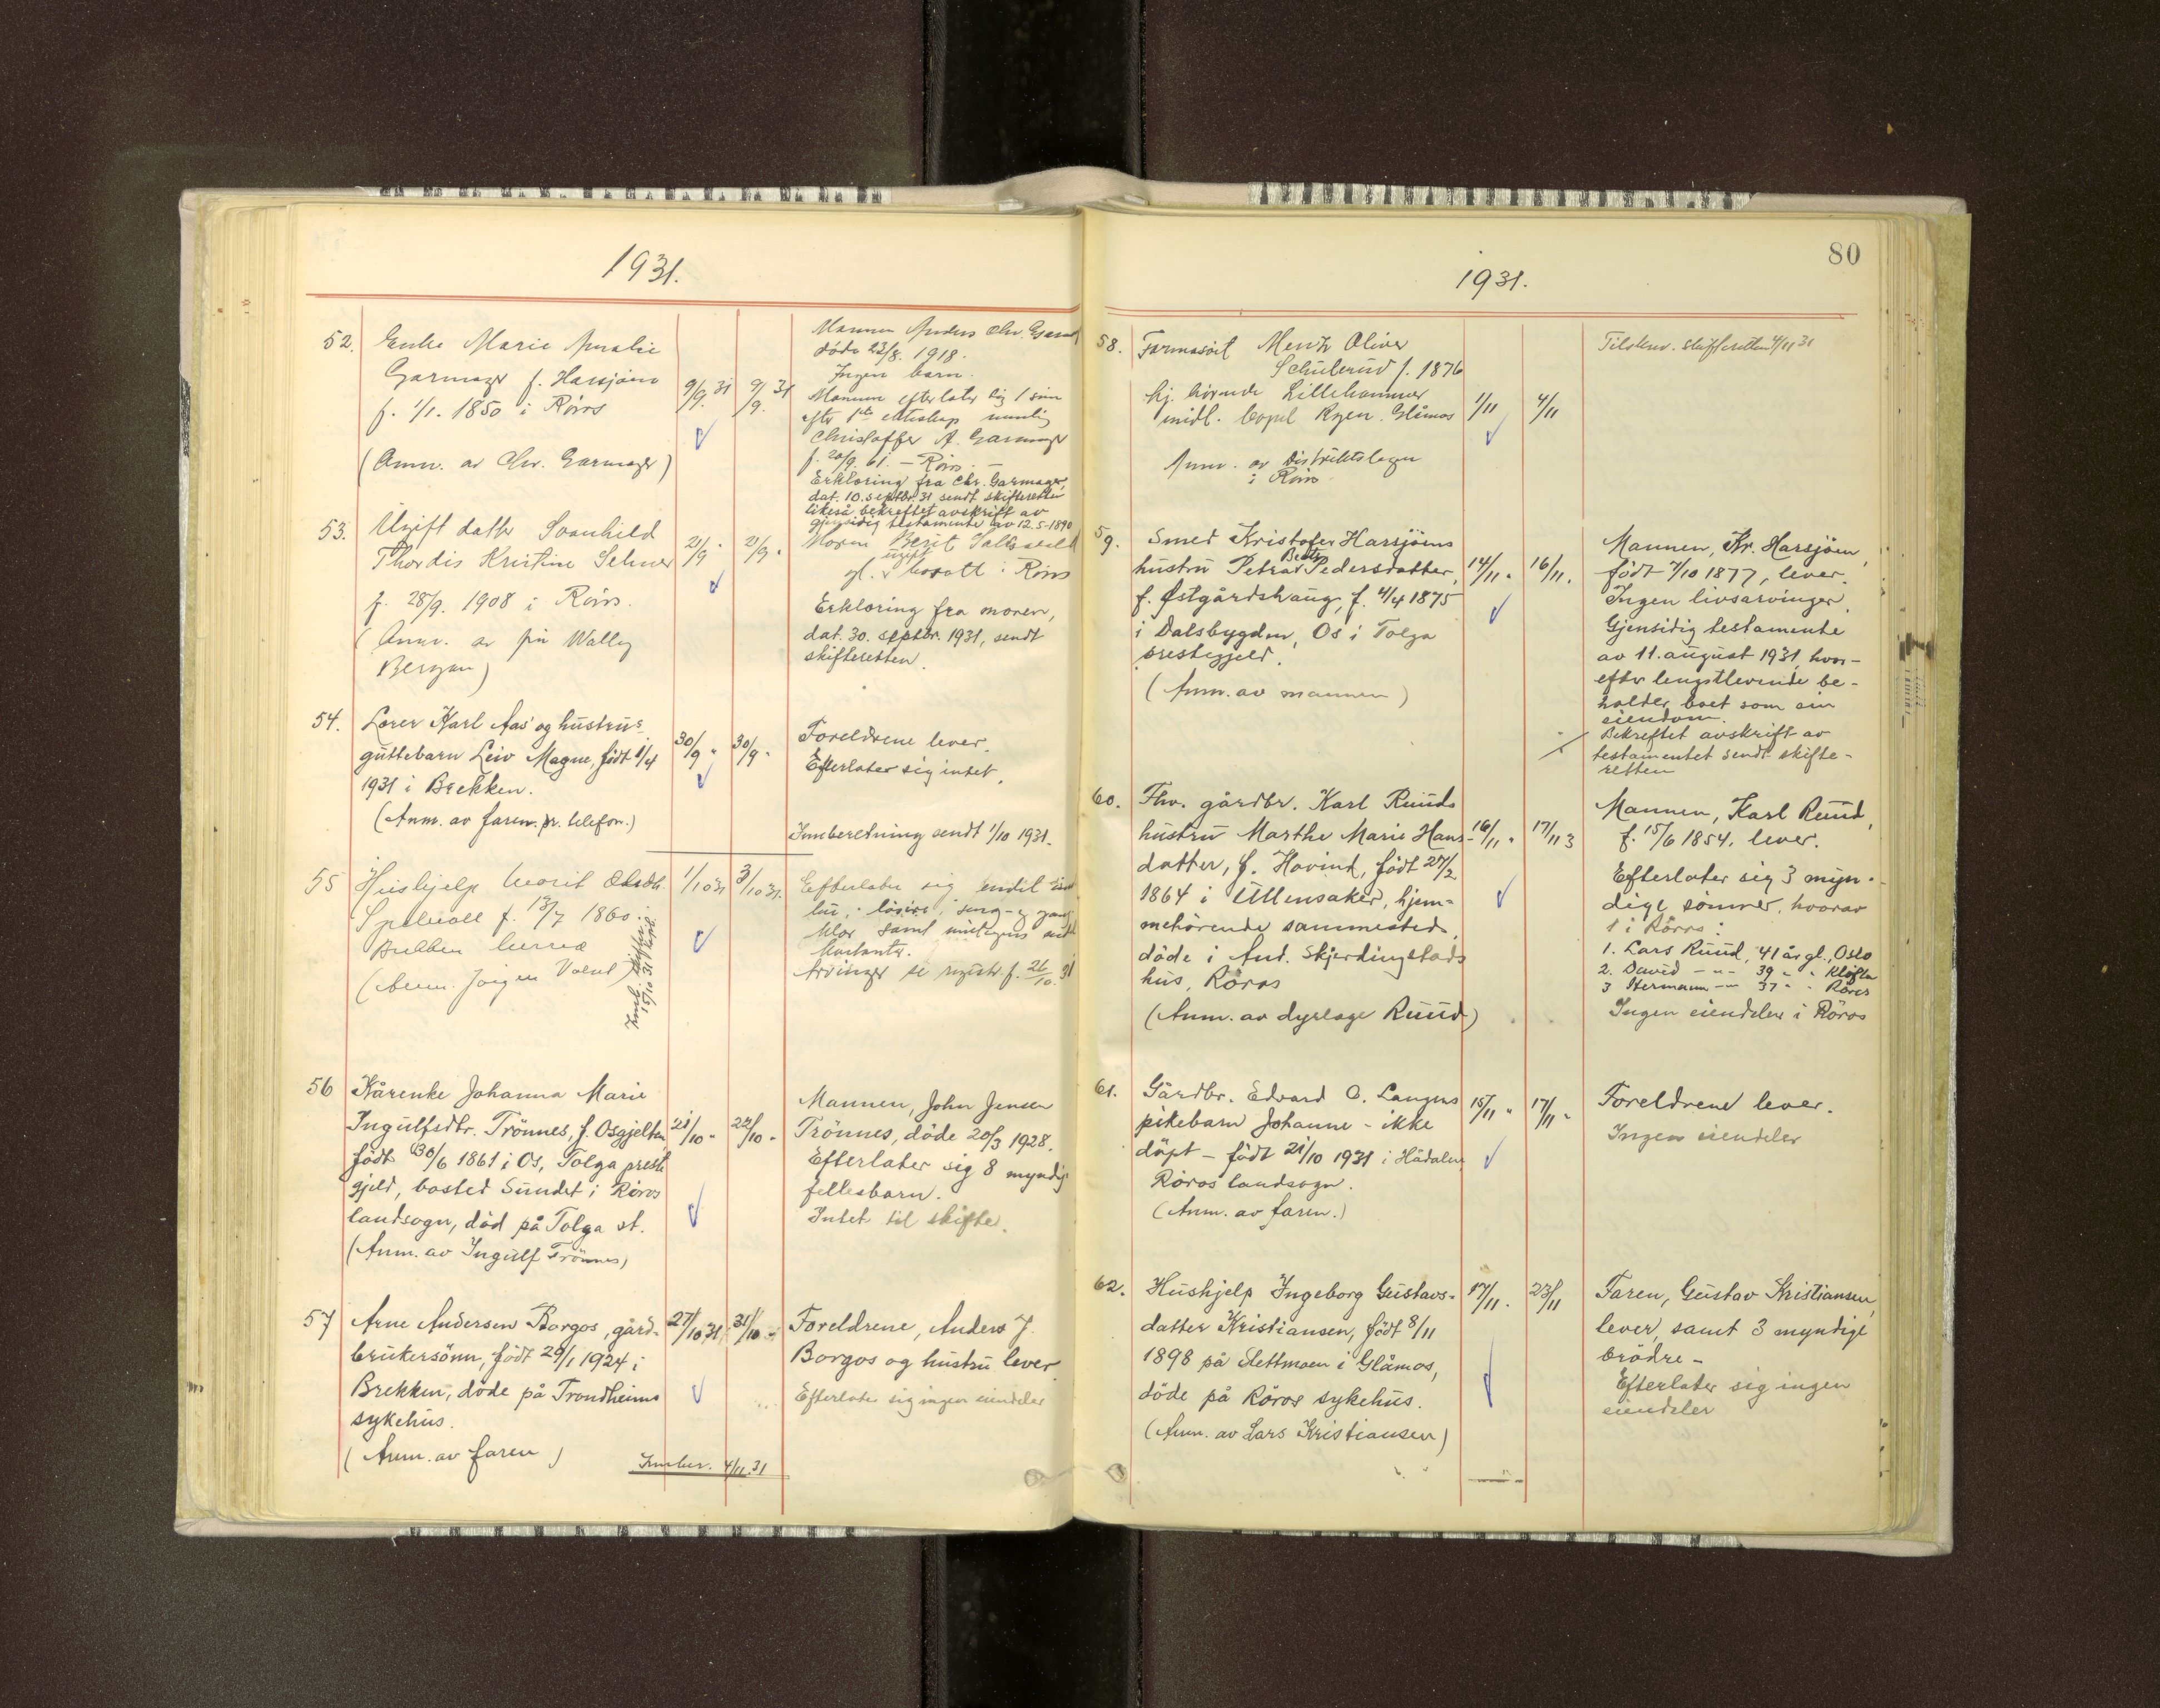 1931.
52. Enke Marie Amalie
Garmager f. Harsjøen
f. 1/1. 1850 i Røros
(Anm. av Chr. Garmager)
9/9 31
9/9. 31
Mannen Anders Chr. Garm
døde 23/8. 1918.
Ingen barn.
Mannen efterlater sig 1 sønn
efter 1ste ekteskap nemlig
Christoffer A. Garmager
f. 20/9. 61. – Røros. –
Erklæring fra Chr. Garmager,
dat. 10. septbr. 31 sendt skifteretten
likeså bekreftet avskrift av
gjensidig testamente av 12.5-1890
53. Ugift datter Svanhild
Thordis Kristine Selmer
f. 28/9. 1908 i Røros.
(Anm. av frk Wally
Bergan)
21/9 "
21/9 "
Moren Berit
ugift
bosatt i Røros
Erklæring fra moren,
dat. 30. septbr. 1931, sendt
skifteretten.
54. Lærer Karl Aas' og hustrus
guttebarn Leiv Magne, født 1/4
1931 i Brekken.
(Anm. av faren pr. telefon.)
30/9 "
30/9 "
Foreldrene lever.
Efterlater sig intet.
Innberetning sendt 1/10 1931.
55 Hushjelp Marit Olsdtr.
f. 13/7 1860 i
Brekken herred
(Anm. Jørgen Volut)
1/10 31
3/10 31.
Efterlater sig
samt
Arvinger se registr. f. 26/10 31
56 Kårenke Johanna Marie
Ingulfsdtr. Trönnes, f. Osgjelten,
født 30/6 1861 i Os, Tolga preste
gjeld, bosted Sundet i Röros
landsogn, död på Tolga st.
(Anm. av Ingulf Trönnes)
21/10 "
22/10 "
Mannen, John Jensen
Trönnes, döde 20/3 1928.
Efterlater sig 8 myndig
fellesbarn.
Intet til skifte.
57 Arne Andersen Borgos, gård-
brukersönn, født 29/1 1924 i
Brekken, döde på Trondheims
sykehus.
(Anm. av faren)
27/10 31
31/10 "
Foreldrene, Anders J.
Borgos og hustru lever.
Efterlater sig ingen eiendeler
Innber. 4/11.31
80
1931.
58. Farmasöit Mentz Oliver
Schulerud f. 1876
hj. hörende Lillehammer
midl. Ryen. Glåmos
Anm. av Distriktslegen
i Röros
1/11
4/11
Tilskrev. skifteretten 4/11 31
59. Smed Kristofer Harsjöens
hustru Petra Beate Pedersdatter,
f. Østgårdshaug, f. 4/4 1875
i Dalsbygden, Os i Tolga
prestegjeld.
(Anm. av mannen)
14/11 "
16/11.
Mannen, Kr. Harsjöen,
født 7/10 1877, lever.
Ingen livsarvinger.
Gjensidig testamente
av 11. august 1931, hvor-
efter lengstlevende be-
holder boet som sin
eiendom.
Bekreftet avskrift av
testamentet sendt skifte-
retten
60. Fhv. gårdbr. Karl Ruuds
hustru Marthe Marie Hans-
datter, f. Hovind, født 27/2
1864 i Ullensaker, hjem-
mehörende sammesteds,
döde i And. Skjerdingstads
hus, Röros
(Anm. av dyrlæge Ruud)
16/11 "
17/11 3
Mannen, Karl Ruud,
f. 15/6 1854, lever.
Efterlater sig 3 myn-
dige sönner, hvorav
1 i Röros:
1. Lars Ruud, 41 år gl., Oslo
2. David – " – 39 " " Klöfta
3 Hermann – " – 37 " " Röros
Ingen eiendeler i Röros
61. Gårdbr. Edvard O. Langens
pikebarn Johanne – ikke
döpt – født 21/10 1931 i Hådalen
Röros landsogn.
(Anm. av faren.)
15/11 "
17/11 "
Foreldrene lever.
Ingen eiendeler
62. Hushjelp Ingeborg Gustavs-
datter Kristiansen, født 8/11
1898 på Slettmoen i Glåmos,
döde på Röros sykehus.
(Anm. av Lars Kristiansen)
17/11.
23/11
Faren, Gustav Kristiansen,
lever, samt 3 myndige
brödre –
Efterlater sig ingen
eiendeler